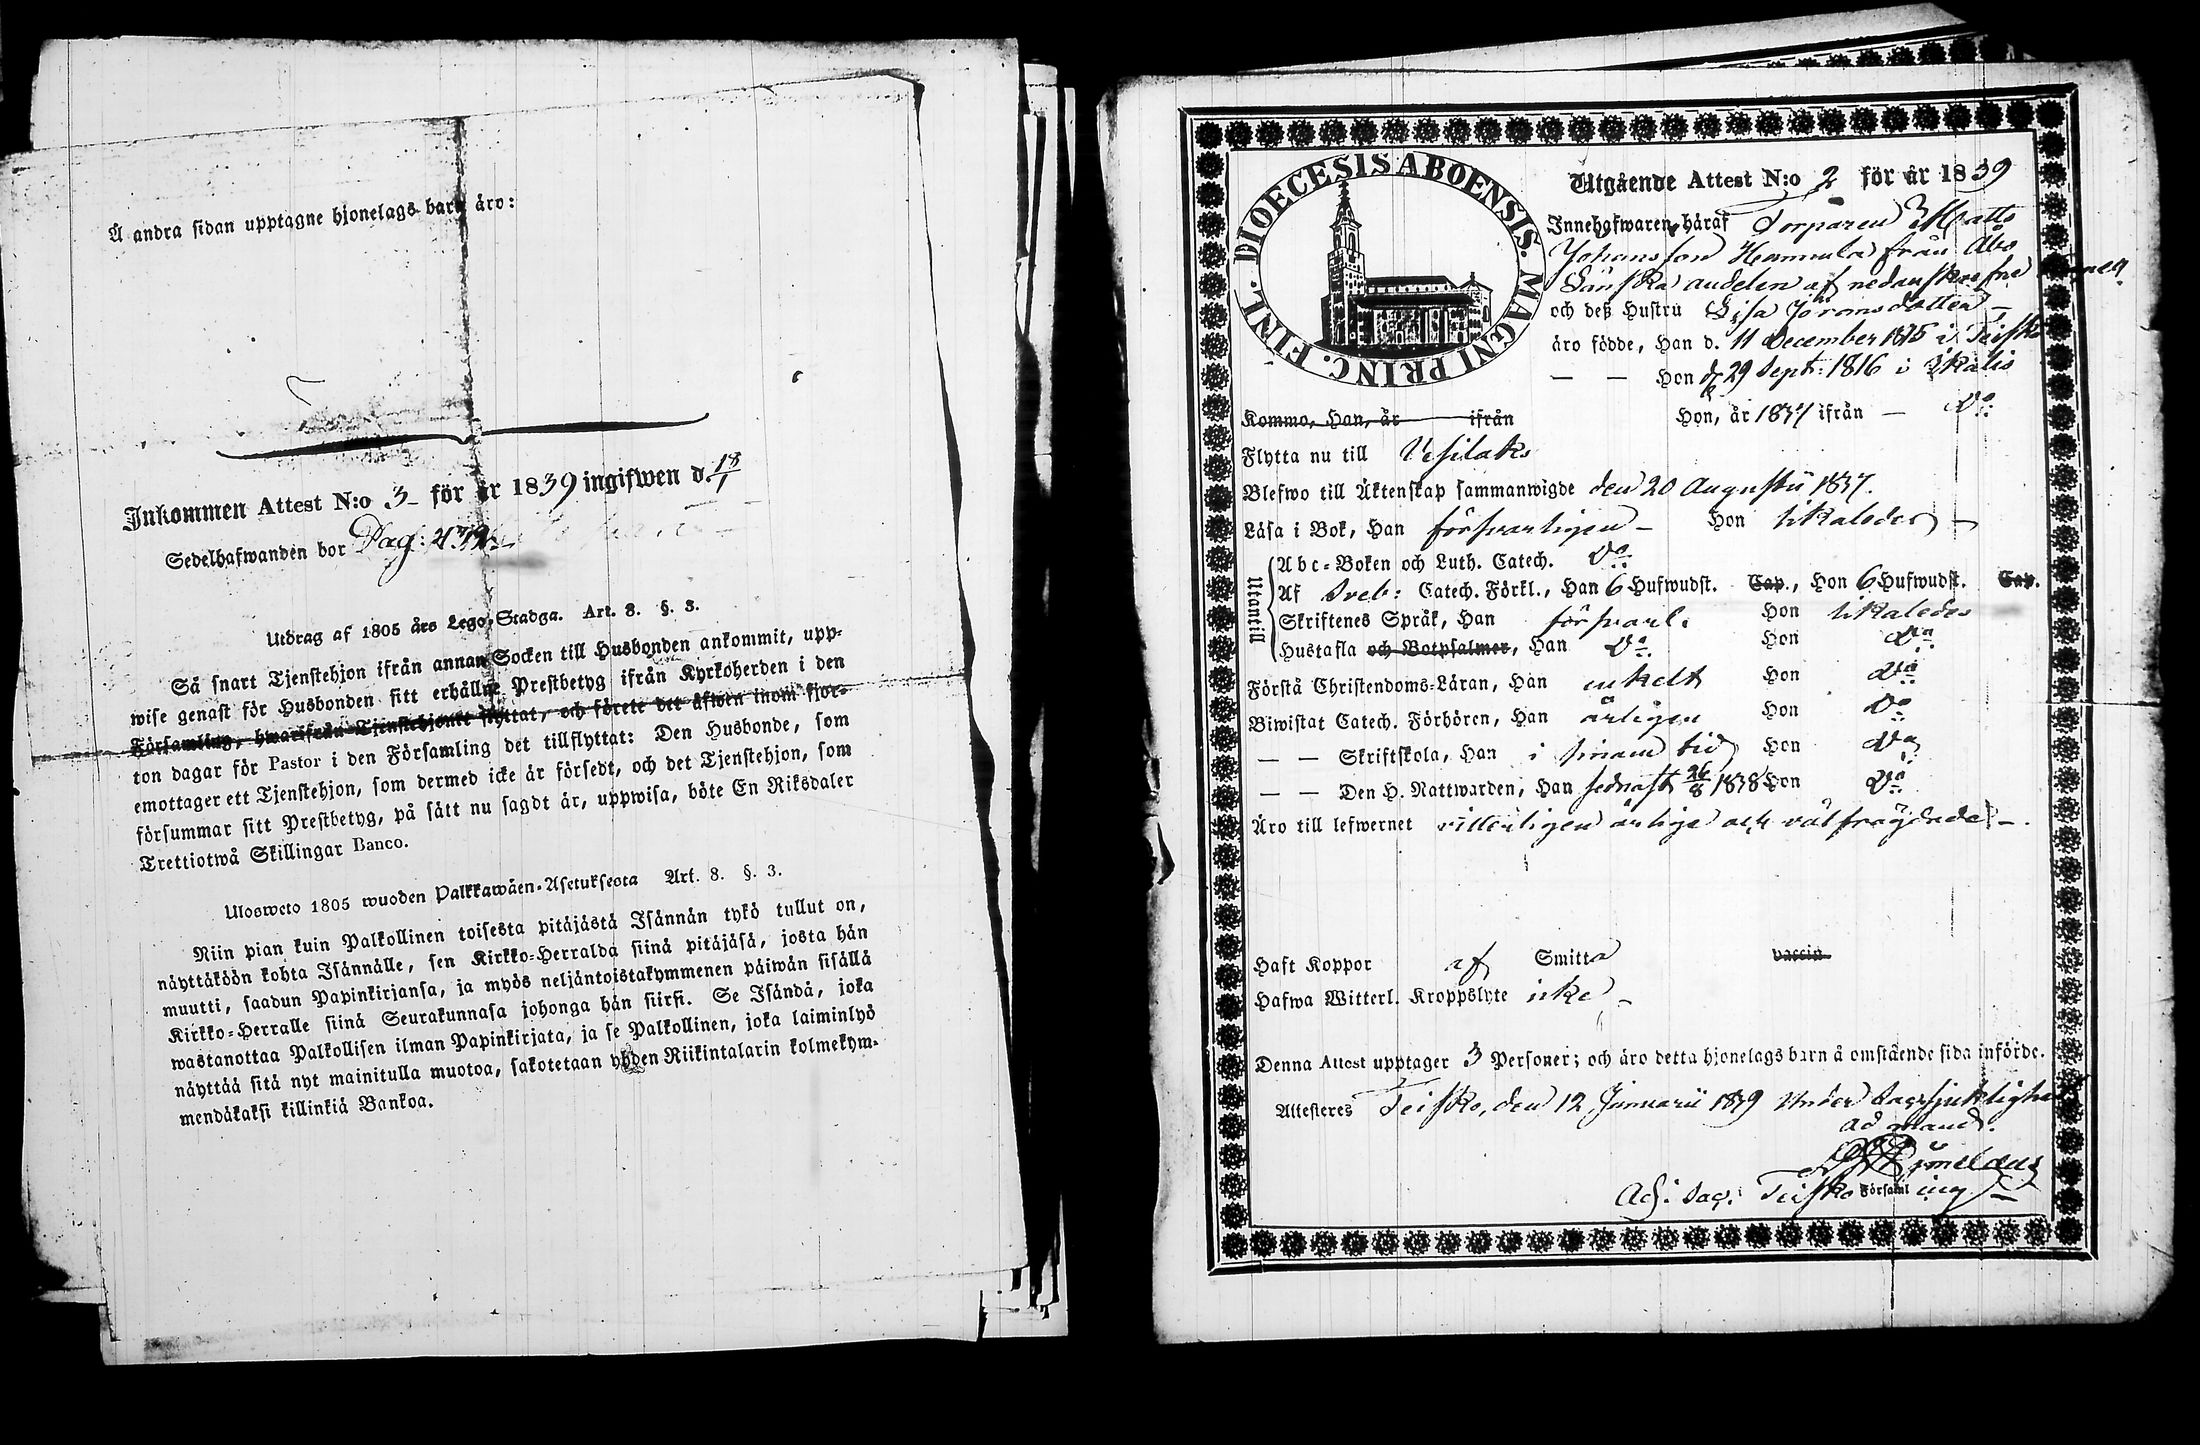 Å andra sidan upptagne hjonelags barn äro:
Inkommen Attest N:o 3 för år 1839 ingifwen d. 18/1
Sedelhafwanden bor Pag: 439.
Utdrag af 1805 års Lego-Stadga. Art. 8. §. 3.
Så snart Tjenstehjon ifrån annan Socken till Husbonden ankommit, upp-
wise genast för Husbonden sitt erhållne Prestbetyg ifrån Kyrkoherden i den
Församling, hwarifrån Tjenstehjonet flyttat, och förete det äfwen inom fjor-
ton dagar för Pastor i den Församling det tillflyttat: Den Husbonde, som
emottager ett Tjenstehjon, som dermed icke är försedt, och det Tjenstehjon, som
försummar sitt Prestbetyg, på sätt nu sagdt är, uppwisa, böte En Riksdaler
Trettiotwå Skillingar Banco.
Ulosweto 1805 wuoden Palkkawäen-Asetuksesta Art. 8. §. 3.
Niin pian kuin Palkollinen toisesta pitäjästä Isännän tykö tullut on,
näyttäköön kohta Isännälle, sen Kirkko-Herralda siinä pitäjäsä, josta hän
muutti, saadun Papinkirjansa, ja myös neljäntoistakymmenen päiwän sisällä
Kirkko-Herralle siinä Seurakunnasa johonga hän siirsi. Se Isändä, joka
wastanottaa Palkollisen ilman Papinkirjata, ja se Palkollinen, joka laiminlyö
näyttää sitä nyt mainitulla muotoa, sakotetaan yhden Riikintalarin kolmekym-
mendäkaksi killinkiä Bankoa.
DIOECESIS ABOENSIS. MAGNI PRINC. FINL.
Utgående Attest N:o 2 för år 1839
Innehafwaren häraf Torparen Matts
Johansson Hammula från Åbo
Länska andelen af nedanskrefne
och deß Hustru Lisa Jöransdotter
äro födde, Han d. 11 December 1815 i Teisko
— — Hon d. 29 Sept: 1816 i Ikalis
Kommo, Han, år ifrån Hon, år 1837 ifrån — Do
Flytta nu till Vesilaks
Blefwo till Äktenskap sammanwigde den 20 Augusti 1837.
Läsa i Bok, Han försvarligen — Hon likaledes —
Utantill
Abc-Boken och Luth. Catech. Do
Af Sveb: Catech. Förkl., Han 6 Hufwudst. Cap., Hon 6 Hufwudst. Cap.
Skriftenes Språk, Han försvarl. Hon likaledes
Hustafla och Botpsalmer, Han Do Hon Do
Förstå Christendoms-Läran, Han enkelt Hon Do
Biwistat Catech. Förhören, Han årligen Hon Do
— — Skriftskola, Han i sinom tid Hon Do
— — Den H. Nattwarden, Han sednast 26/8 1838 Hon Do
Äro till lefwernet vitterligen ärlige och välfrägdade —
Haft Koppor af Smitta vaccin.
Hafwa Witterl. Kroppslyte icke —
Denna Attest upptager 3 Personer; och äro detta hjonelags barn å omstående sida införde.
Attesteres Teisko, den 12 Januarii 1839 Under
ad mand.
Adj: Sac: Teisko Församling